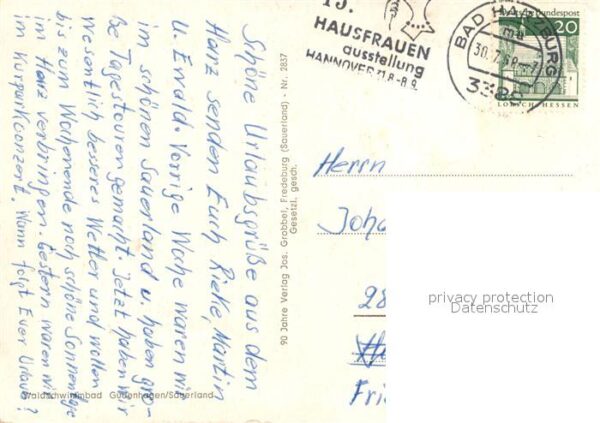 Schöne Urlaubsgrüße aus dem
Harz senden Euch Rieke, Martin
u. Ewald. Vorrige Woche waren wir
im schönen Sauerland u. haben gro-
ße Tagestouren gemacht. Jetzt haben wir
wesentlich besseres Wetter und wollen
bis zum Wochenende noch schöne Sonnentage
im Harz verbringen. Gestern waren wir
im Kurparkonzert. Wann folgt Euer Urlaub?
Waldschwimmbad Gudenhagen/Sauerland
90 Jahre Verlag Jos. Grobbel, Fredeburg (Sauerland) - Nr. 2837
Gesetzl. gesch.
15.
HAUSFRAUEN
ausstellung
HANNOVER 31.8.-8.9.
BAD HARZBURG
30.7.68
3388
Deutsche Bundespost
20
LORSCH/HESSEN
Herrn
Joha
28
Frie
privacy protection
Datenschutz